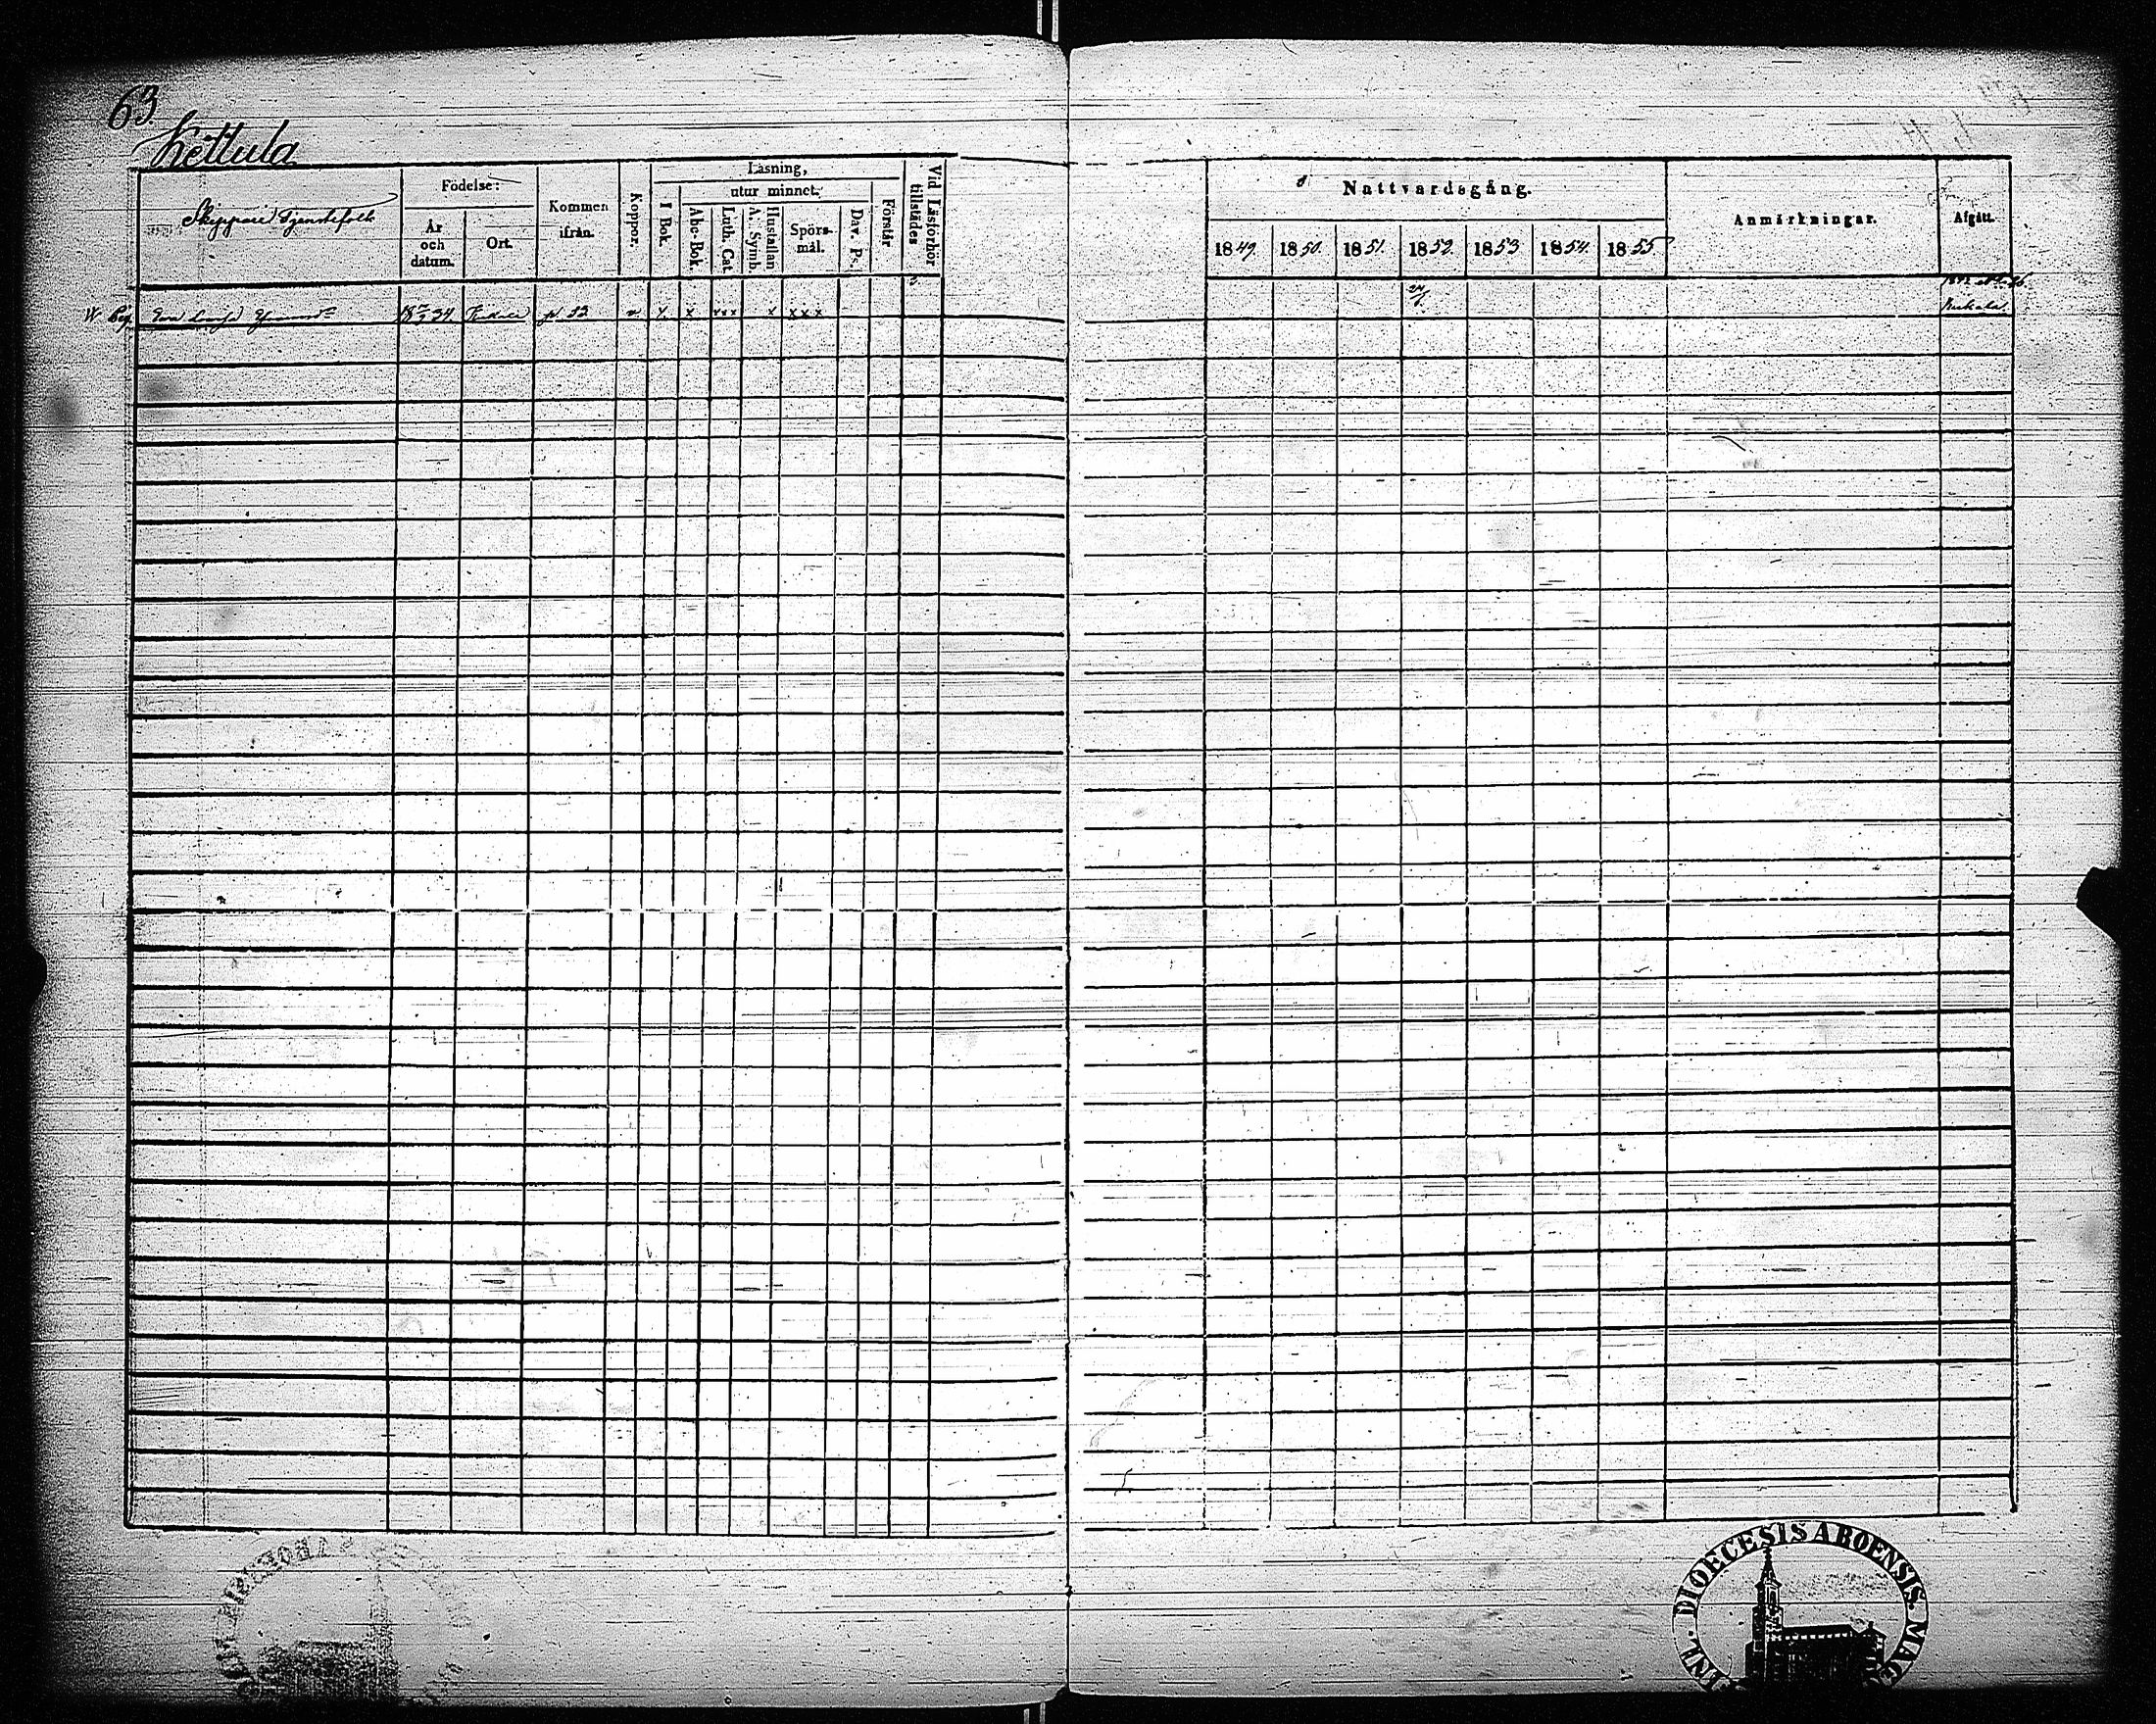 63.
Kettula
Skeppari Tjenstefolk
Födelse:
År och datum.
Ort.
Kommen ifrån.
Koppor.
Läsning,
I Bok.
utur minnet.
Abc-Bok.
Luth. Cat.
Hustaflan A. Symb.
Spörs-mål.
Dav. Ps.
Förstår
Vid Läsförhör tillstädes
Nattvardsgång.
1849. 1850. 1851. 1852. 1853 1854. 1855.
Anmärkningar.
Afgått.
Eva Lovisa 34 x x xxx x xxx
DIOECESIS ABOENSIS. MAG